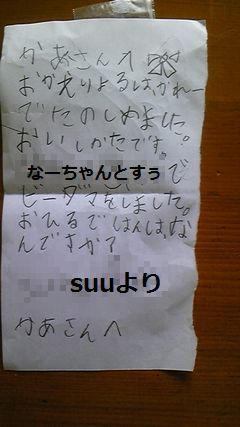 かあさんへ
おかえりよるは、かれー
でたのしめました。
おいしかたです。
なーちゃんとすぅ で
ビーダマをしました。
おひるごはんは、な
んですか?
suuより
かあさんへ